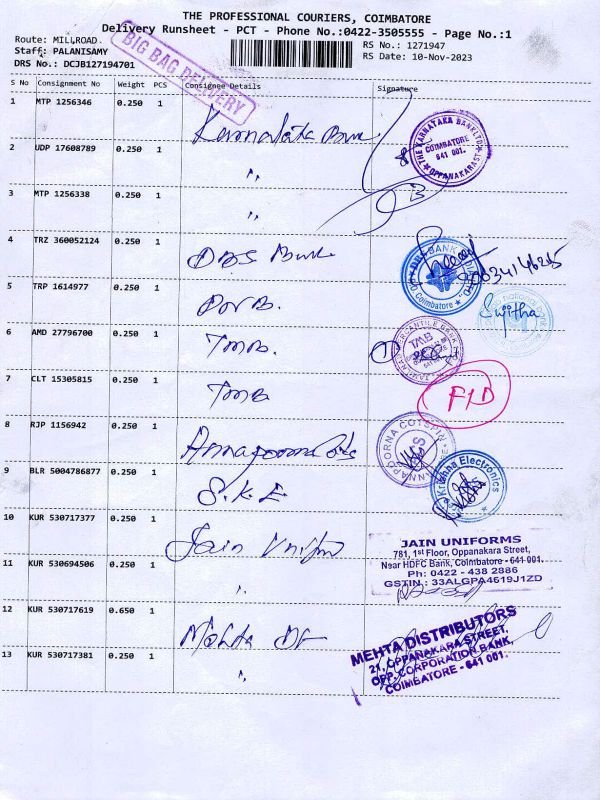 THE PROFESSIONAL COURIERS, COIMBATORE
Delivery Runsheet - PCT - Phone No.:0422-3505555 - Page No.:1
Route: MILLROAD.
Staff: PALANISAMY
DRS No.: DCJB127194701
RS No.: 1271947
RS Date: 10-Nov-2023
BIG BAG DELIVERY
S No Consignment No Weight PCS Consignee Details Signature
1 MTP 1256346 0.250 1 Karnataka Bank
THE KARNATAKA BANK LTD
COIMBATORE
641 001.
OPPANAKARA ST
2 UDP 17608789 0.250 1 〃
3 MTP 1256338 0.250 1 〃
4 TRZ 360052124 0.250 1 DBS Bank
DBS BANK
Coimbatore
5 TRP 1614977 0.250 1
Sujitha
6 AMD 27796700 0.250 1 TMB.
TMB
7 CLT 15305815 0.250 1 TMB
F1D
8 RJP 1156942 0.250 1 Annapoorna Cots
ANNAPOORNA COTSPIN
9 BLR 5004786877 0.250 1 S.K.E
Krishna Electronics
10 KUR 530717377 0.250 1 Jain Uniform
JAIN UNIFORMS
781, 1st Floor, Oppanakara Street,
Near HDFC Bank, Coimbatore - 641 001.
Ph: 0422 - 438 2886
GSTIN : 33ALGPA4619J1ZD
11 KUR 530694506 0.250 1 〃
12 KUR 530717619 0.650 1 Mehta DF
MEHTA DISTRIBUTORS
21, OPPANAKARA STREET,
OPP. CORPORATION BANK,
COIMBATORE - 641 001.
13 KUR 530717381 0.250 1 〃